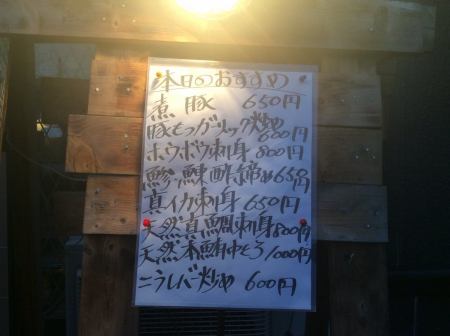 本日のおすすめ
煮豚 650円
豚もつガーリック炒め 600円
ホウボウ刺身 800円
鯵、鰊酢締め 650円
真イカ刺身 650円
天然真鯛刺身 800円
天然本鮪中とろ 1000円
ニラレバー炒め 600円